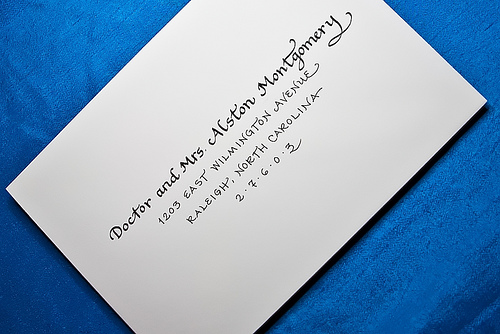 Doctor and Mrs. Alston Montgomery
1203 EAST WILMINGTON AVENUE
RALEIGH, NORTH CAROLINA
2·7·6·0·3